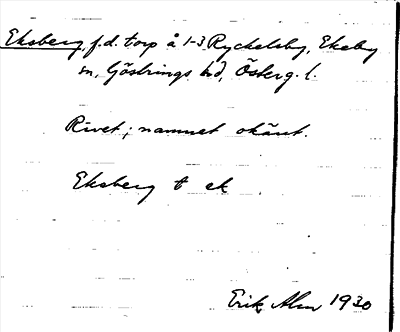 Eksberg, f.d. torp å 1-3 Ryckelsby, Ekeby
sn, Göstrings hd, Österg. l.
Rivet; namnet okänt.
Eksberg t ek
Erik Alm 1930